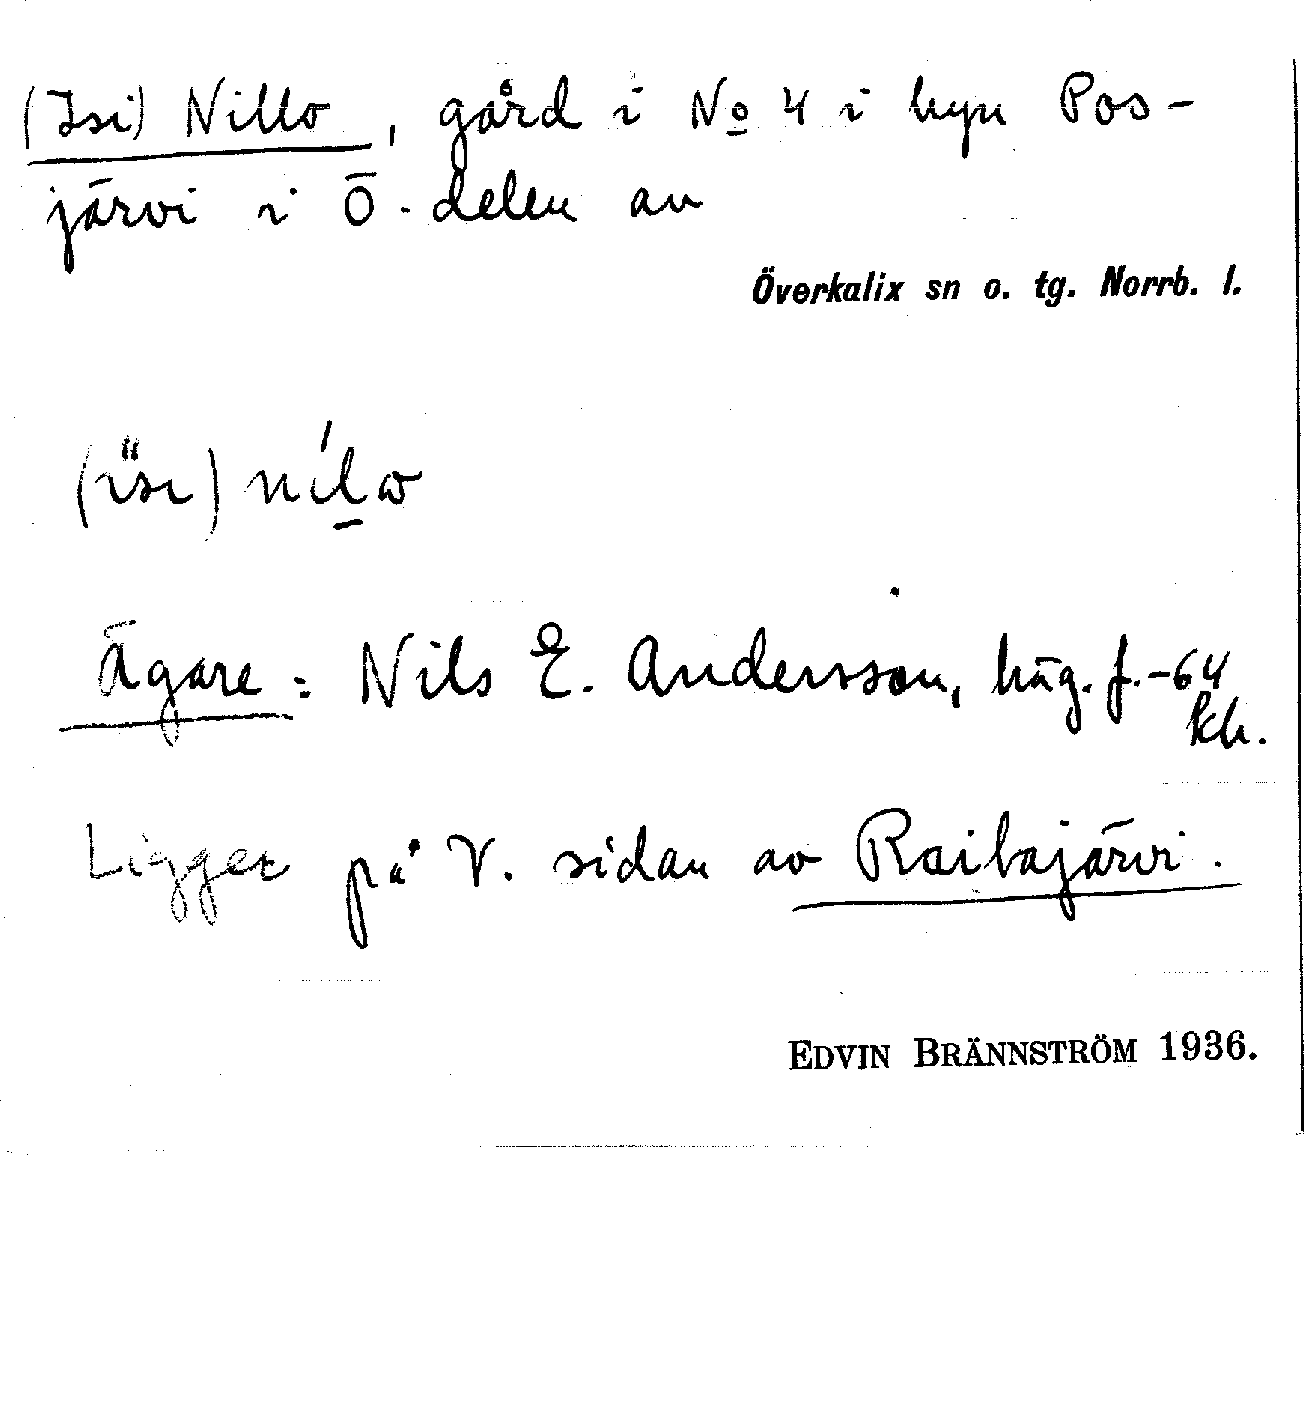 (Isi) Nillo, gård i No 4 i byn Pos-
järvi i Ö-delen av
Överkalix sn o. tg. Norrb. l.
(ïsi) nílω
Ägare: Nils E. Andersson, häg. f. -64
kb.
Ligger på V. sidan av Raitajärvi.
EDVIN BRÄNNSTRÖM 1936.